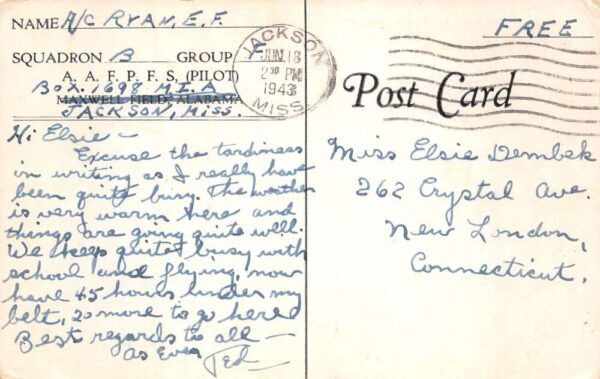 NAME A/C RYAN, E. F.
SQUADRON B GROUP F
A. A. F. P. F. S. (PILOT)
BOX 1698 M.I.A
MAXWELL FIELD, ALABAMA
JACKSON, MISS.
JACKSON
JUN 18
2 30 PM
1943
MISS.
FREE
Post Card
Hi Elsie —
Excuse the tardiness
in writing as I really have
been quite busy. The weather
is very warm here and
things are going quite well.
We keep quite busy with
school and flying, now
have 45 hours under my
belt, 20 more to go here
Best regards to all —
As Ever
Ted
Miss Elsie Dembek
262 Crystal Ave.
New London,
Connecticut.